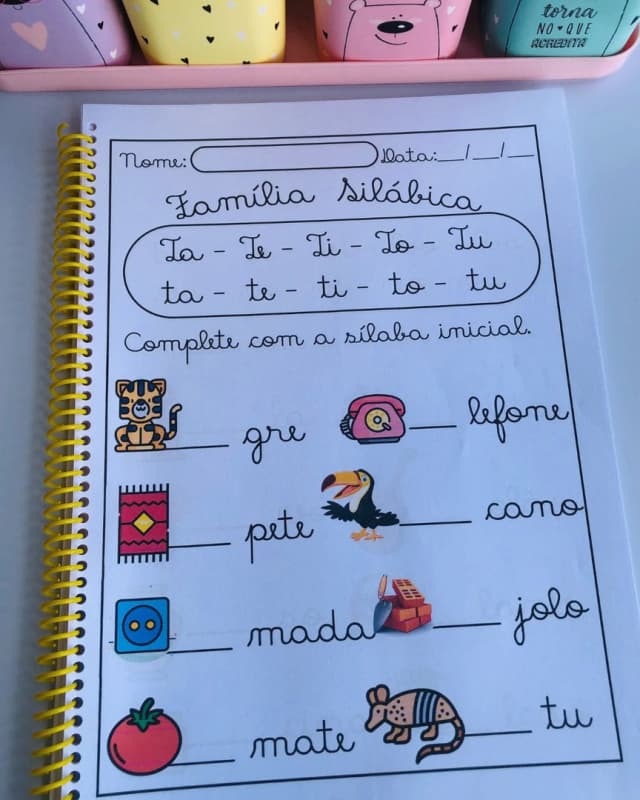 torna
NO ♥ QUE
ACREDITA
Nome: Data:__/__/__
Família Silábica
Ta - Te - Ti - To - Tu
ta - te - ti - to - tu
Complete com a sílaba inicial.
____ gre ____ lefone
____ pete ____ cano
____ mada ____ jolo
____ mate ____ tu